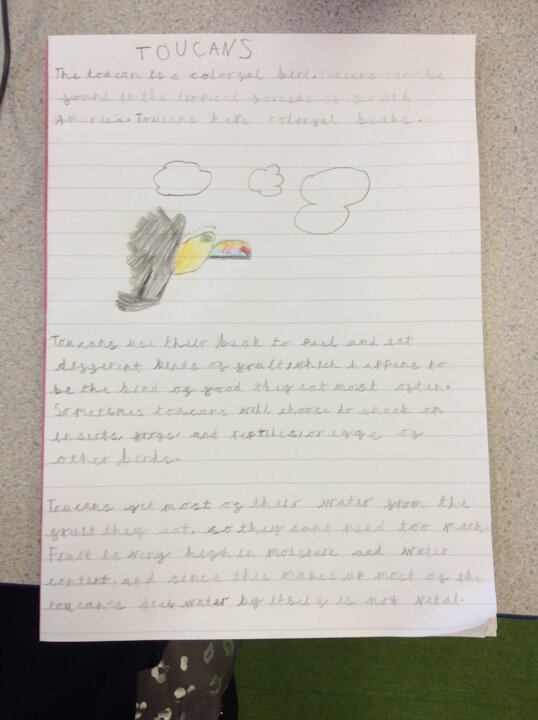 TOUCANS
The toucan is a colorful bird. Toucans can be
found in the tropical forests of south
America. Toucans have colorful beaks.
Toucans use their beak to peel and eat
different kinds of fruit, which happens to
be the kind of food they eat most often.
Sometimes toucans will choose to snack on
insects, frogs, and reptiles, or eggs of
other birds.
Toucans get most of their water from the
fruit they eat, so they dont need too much.
Fruit is very high in moisture and water
content, and since this makes up most of the
toucan's diet water by itself is not vital.